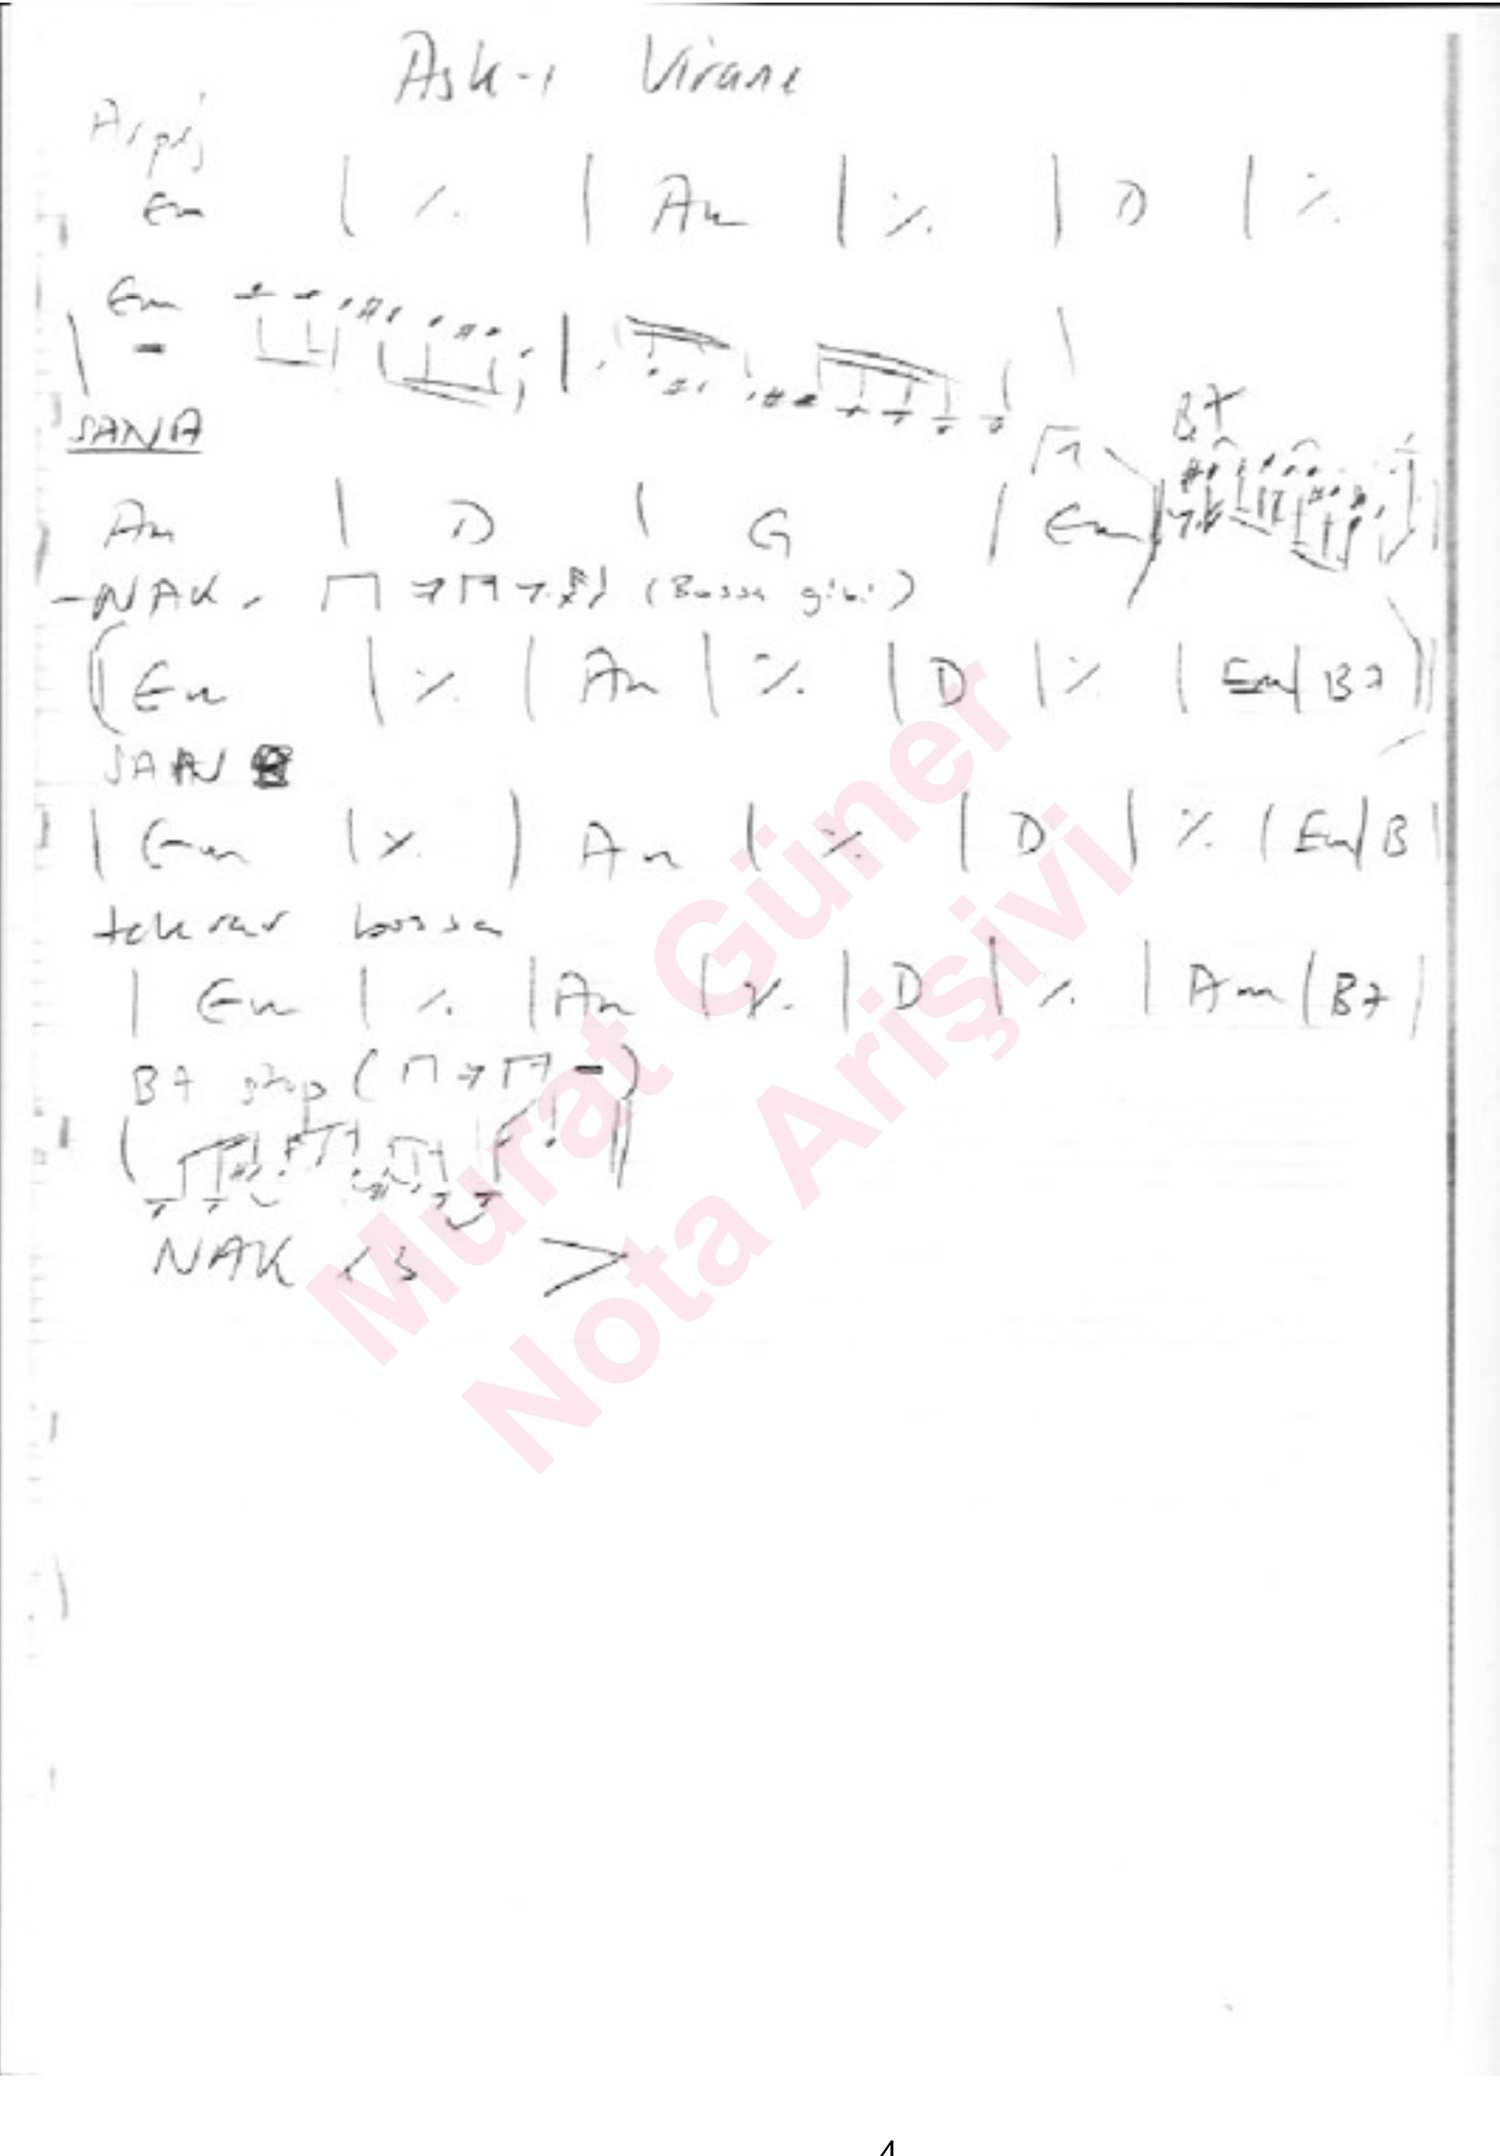 Ask-ı Virane
Arpej
Em | % | Am | % | D | %
Em
SANA
B7
Am | D | G | Em
-NAK- (Bossa gibi)
Em | % | Am | % | D | % | Em | B7
SAN
| Em | % | Am | % | D | % | Em | B |
tekrar bossa
| Em | % | Am | % | D | % | Am | B7 |
B7 stop
NAK <3 >
Murat Güner
Nota Arişivi
4